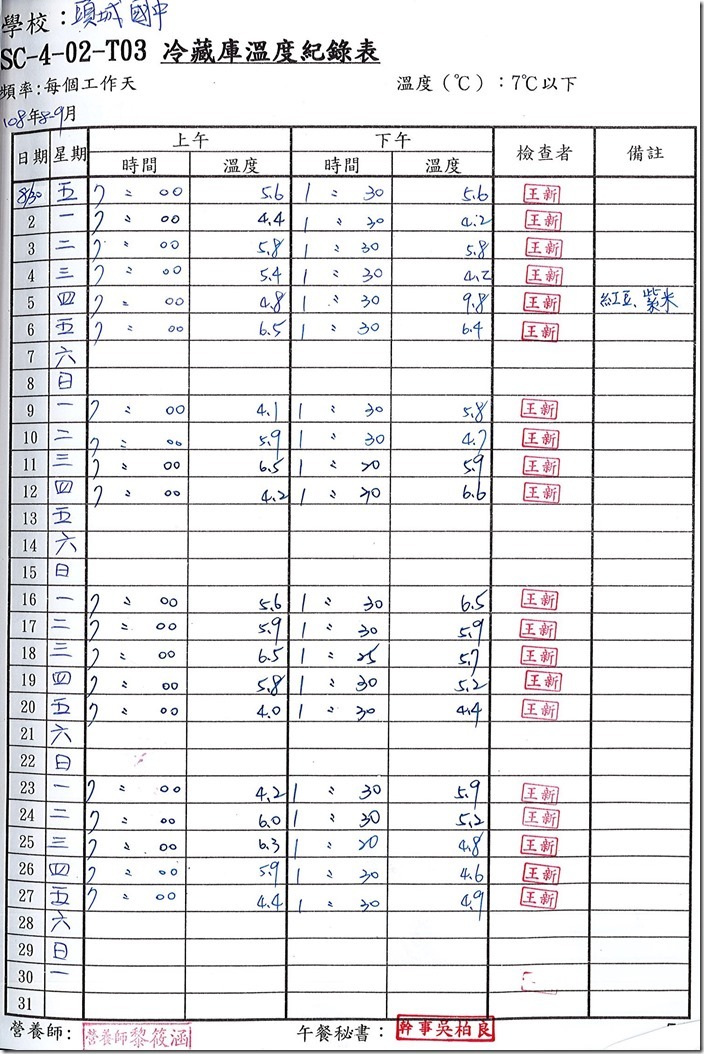 學校：頭城國中
SC-4-02-T03 冷藏庫溫度紀錄表
頻率:每個工作天 溫度（℃）：7℃以下
108年8-9月
日期 星期 上午 下午 檢查者 備註
時間 溫度 時間 溫度
8/30 五 7:00 5.6 1:30 5.6 王新
2 一 7:00 4.4 1:30 4.2 王新
3 二 7:00 5.8 1:30 5.8 王新
4 三 7:00 5.4 1:30 4.2 王新
5 四 7:00 4.8 1:30 9.8 王新 紅豆、紫米
6 五 7:00 6.5 1:30 6.4 王新
7 六
8 日
9 一 7:00 4.1 1:30 5.8 王新
10 二 7:00 5.9 1:30 4.7 王新
11 三 7:00 6.5 1:20 5.9 王新
12 四 7:00 4.2 1:20 6.6 王新
13 五
14 六
15 日
16 一 7:00 5.6 1:30 6.5 王新
17 二 7:00 5.9 1:30 5.9 王新
18 三 7:00 6.5 1:25 5.7 王新
19 四 7:00 5.8 1:30 5.2 王新
20 五 7:00 4.0 1:30 4.4 王新
21 六
22 日
23 一 7:00 4.2 1:30 5.9 王新
24 二 7:00 6.0 1:30 5.2 王新
25 三 7:00 6.3 1:20 4.8 王新
26 四 7:00 5.9 1:30 4.6 王新
27 五 7:00 4.4 1:30 4.9 王新
28 六
29 日
30 一
31
營養師: 營養師黎筱涵 午餐秘書: 幹事吳柏良